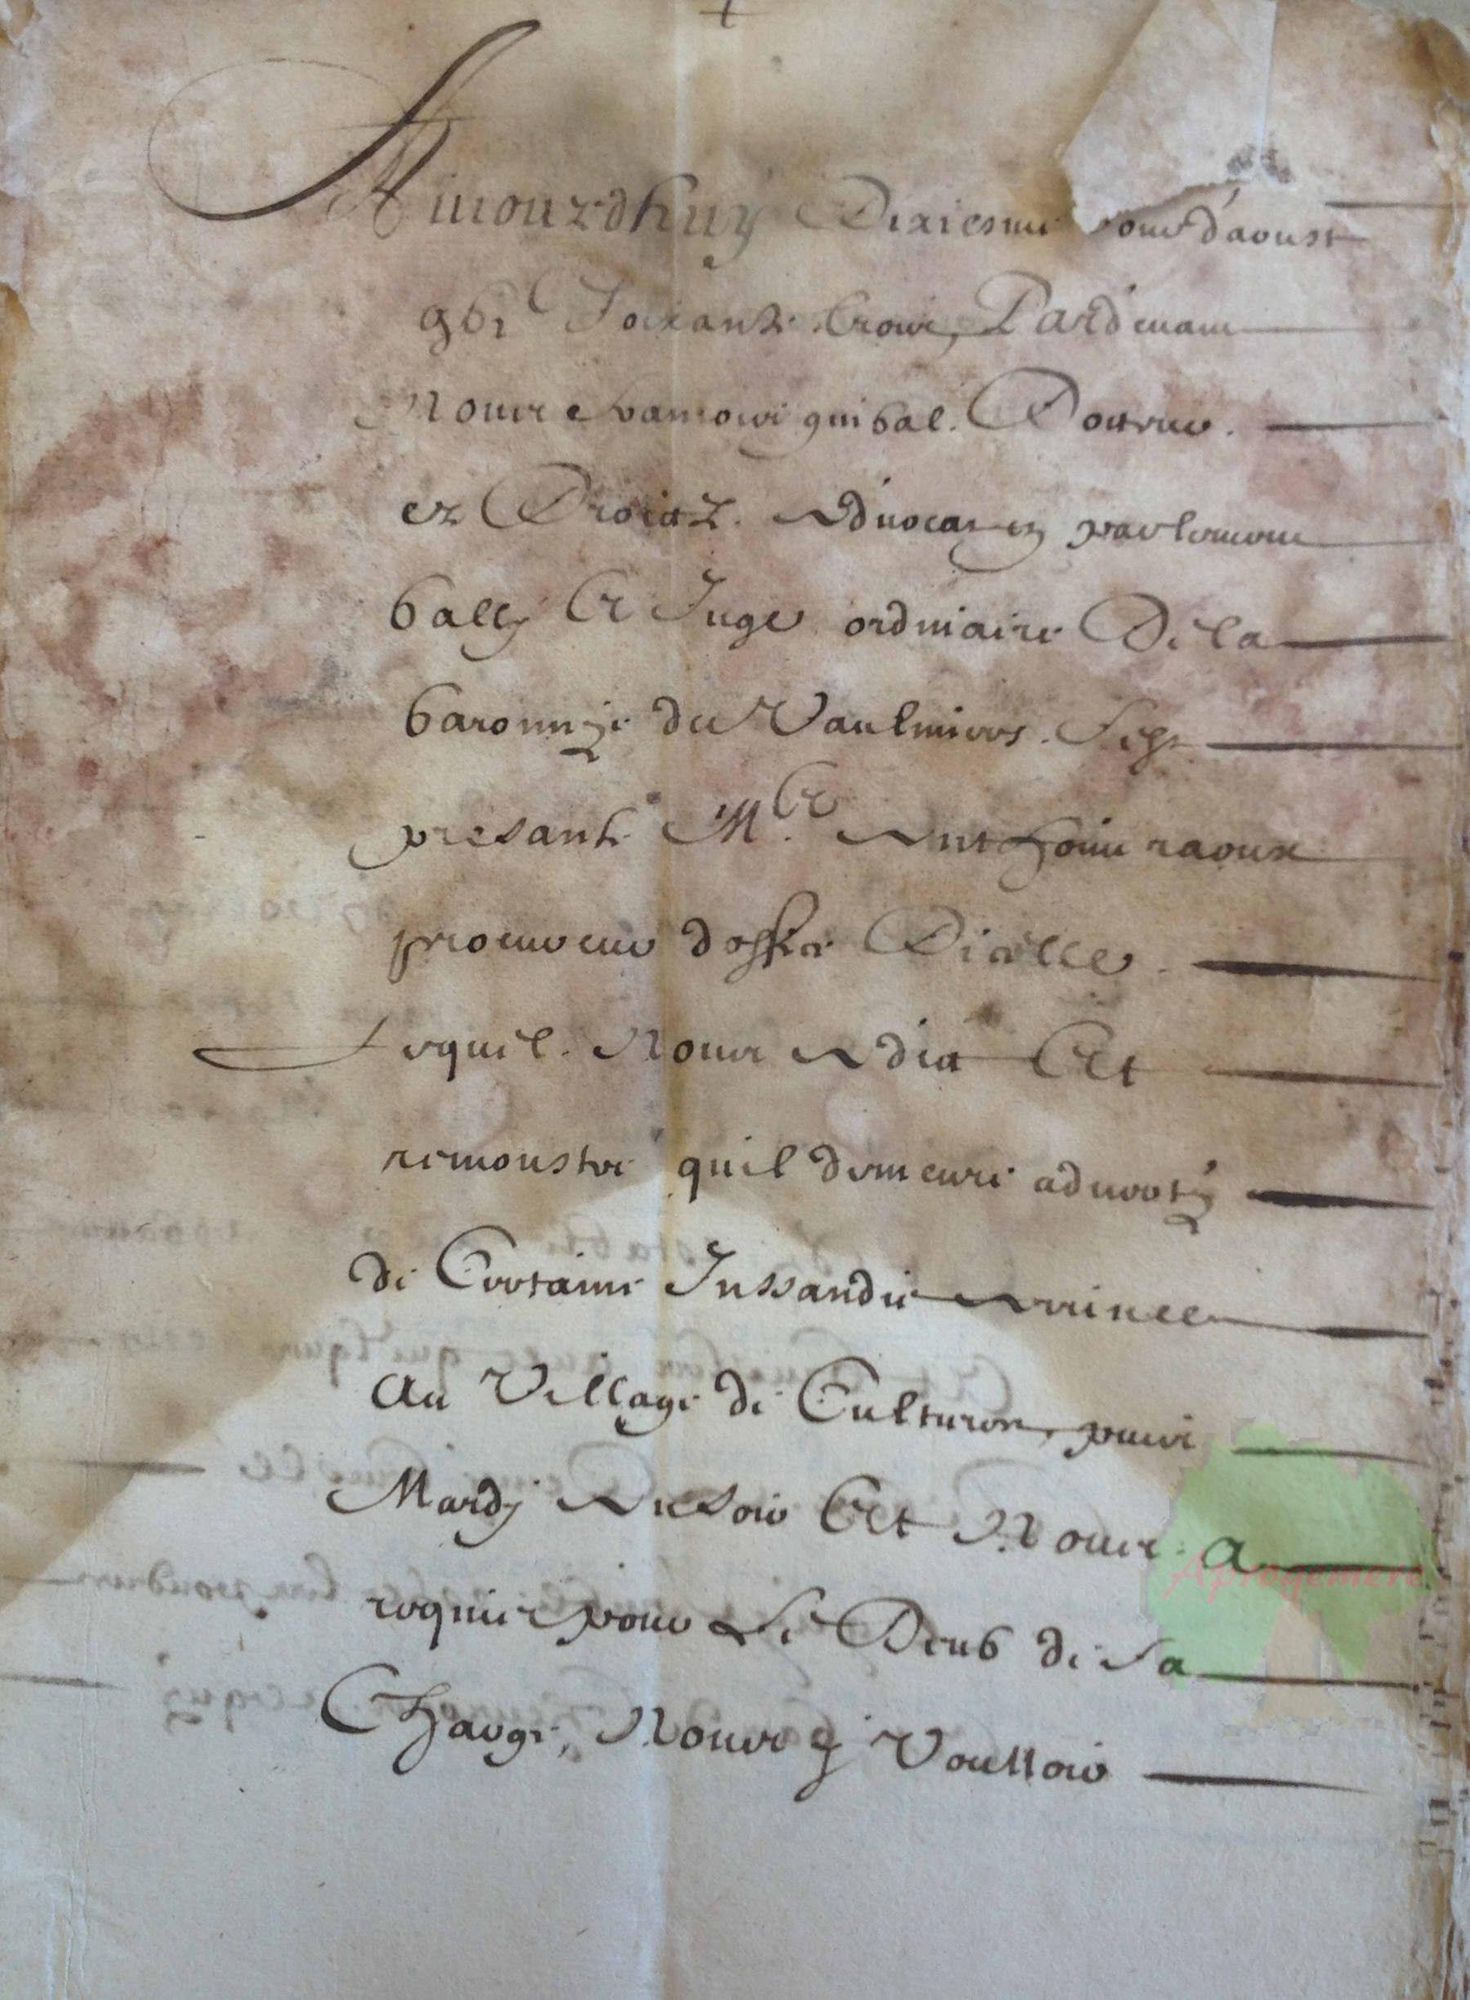 Aujourdhuy Dixiesme jour d'aoust
gbi^c Soixante trois, Pardevant
Nous francois guibal. Docteur
ez Droictz. Advocat en parlement
bally Et Juge ordinaire De la
baronnye du Vaulmiers
presant M^e Anthoine raoux
procureur doffice Dicelle
Lequel. Nous A dict Et
remonstre quil demeure adverty
de Certaine Jncendie Arrivee
Au Village de Culturon, puis
Mardy Au Soir Et Nous a
requis pour Le Deub de Sa
Charge, Nous y Voulloir
Aprogemere